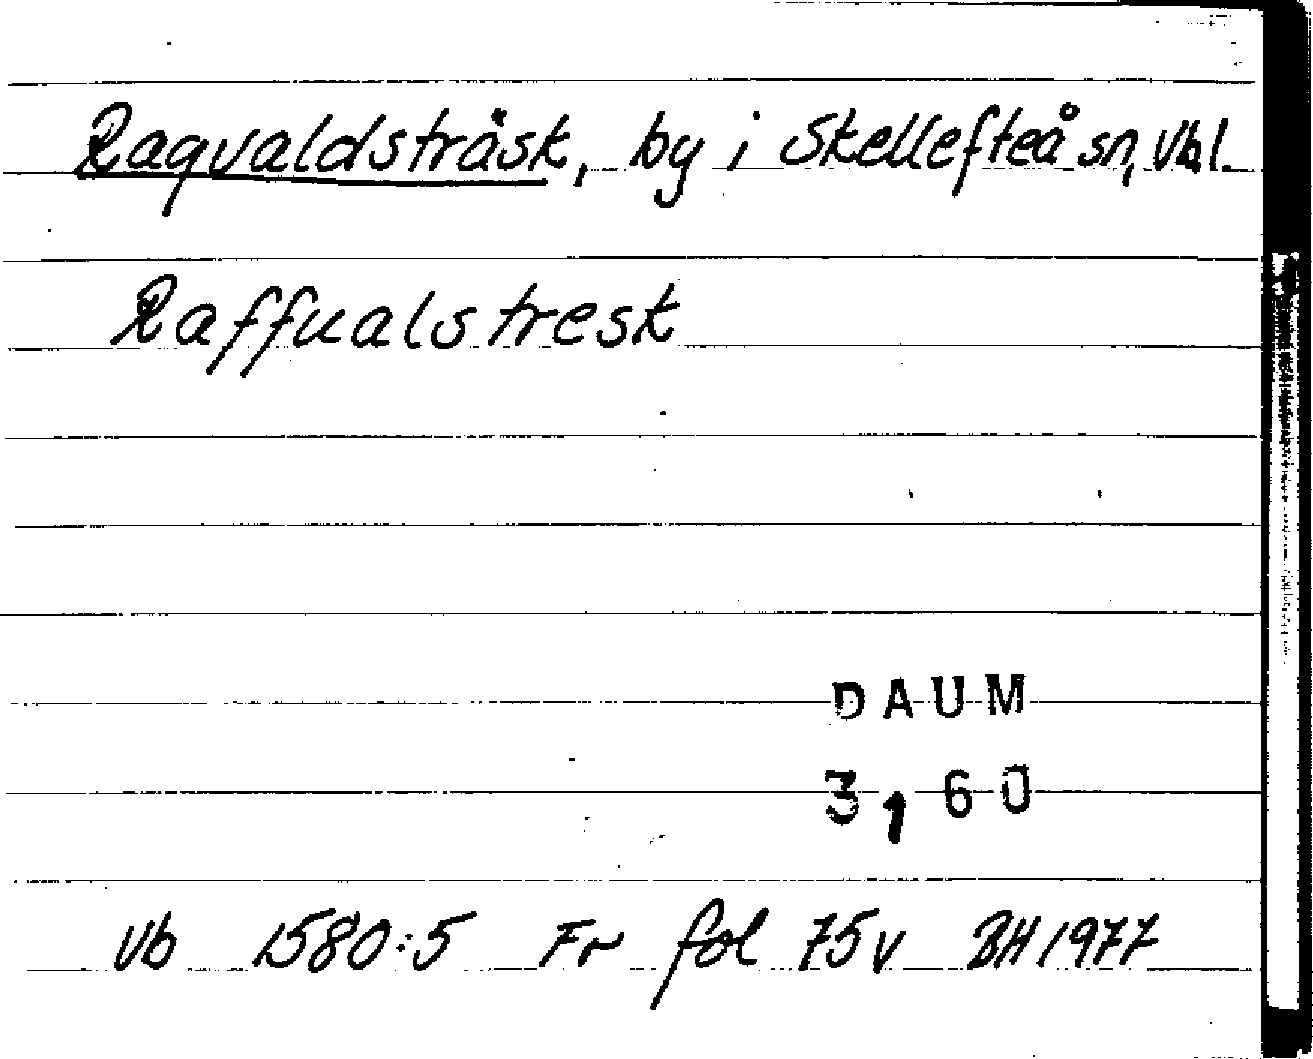 Ragvaldsträsk, by i Skellefteå sn, Vbl.
Raffualstresk
DAUM
3,60
Vb 1580:5 Fr fol 75v BH 1977